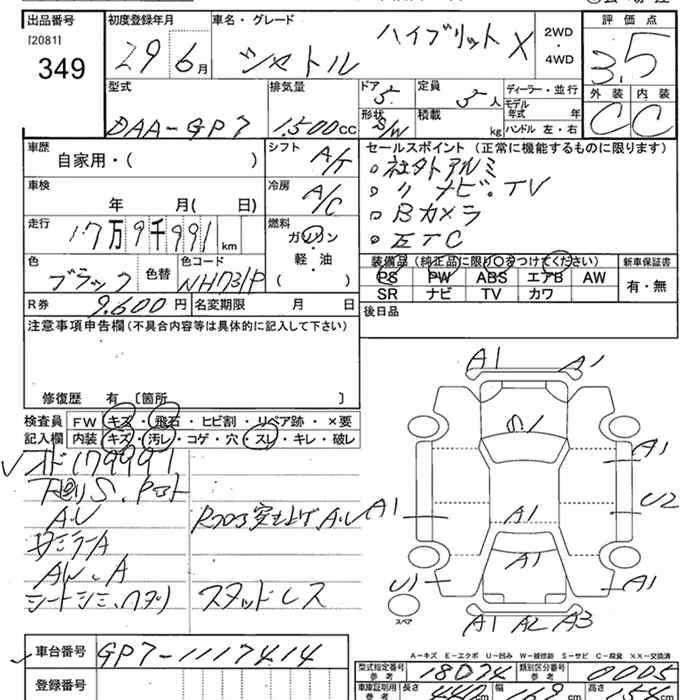 出品番号 初度登録年月 車名・グレード 評価点
[2081]
349 29 6月 シャトル ハイブリット X 2WD・4WD 3.5
型式 排気量 ドア 5 定員 5人 ディーラー・並行 外装 内装
DAA-GP7 1.500cc 形状 S/W 積載 kg モデル年式 年 ハンドル 左・右 C C
車歴 自家用・( ) シフト A/T セールスポイント (正常に機能するものに限ります)
・社外アルミ
車検 年 月( 日) 冷房 A/C ・〃 ナビ。TV
・Bカメラ
走行 17万9千991km 燃料 ガソリン・軽・油( ) ・ETC
装備品 (純正品)に限り○をつけてください) 新車保証書
色 ブラック 色替 色コード NH731P PS PW ABS エアB AW 有・無
SR ナビ TV カワ
R券 9.600円 名変期限 月 日 後日品
注意事項申告欄 (不具合内容等は具体的に記入して下さい)
修復歴 有 [箇所 ]
検査員 FW キズ・飛石・ヒビ割・リペア跡・×要
記入欄 内装 キズ・汚レ・コゲ・穴・スレ・キレ・破レ
179991
A.U
A
シートシミ、
スタッドレス
A1 A1
A1
A1 U2
A1
A1
U1 A1
A1 A2 A3
スペア
A-キズ E-エクボ U-凹み W-補修跡 S-サビ C-腐食 ××-交換済
車台番号 GP7-1117414
登録番号
型式指定番号 参考 18074 類別区分番号 参考 0005
車庫証明用 参考 長さ 440 幅 169 高さ